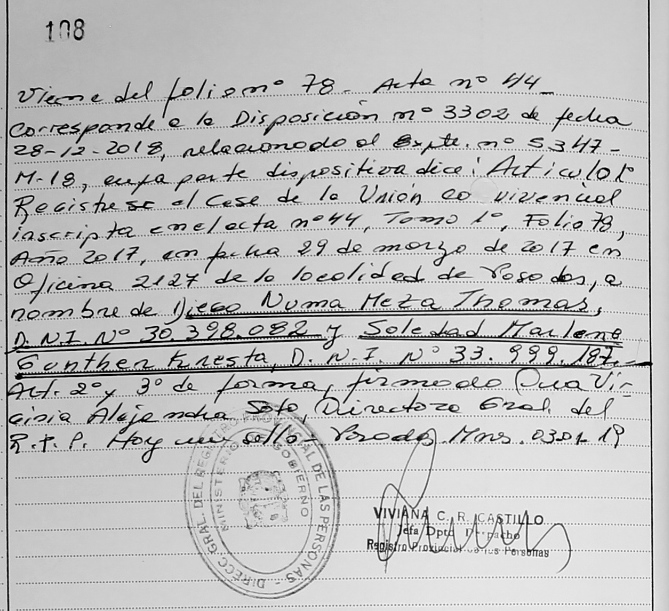 108
Viene del folio nº 78 - Acta nº 44 -
Corresponde a la Disposición nº 3302 de fecha
28-12-2018, relacionado al Expte. nº 5347-
M-18, cuya parte dispositiva dice: Articulo 1º
Regístrese el Cese de la Unión co vivencial
inscripta en el acta nº 44, Tomo 1º, Folio 78,
Año 2017, en fecha 29 de marzo de 2017 en
Oficina 2127 de la localidad de Posadas, a
nombre de Diego Numa Meza Thomas,
D.N.I. Nº 30.398.082 y Soledad Marlene
Gunther Kresta, D.N.I. Nº 33.999.187.-
Art. 2º y 3º de forma, firmado
Alejandra Soto, Directora Gral. del
R.P.P. Hoy un sello - Posadas. Mns. 03.01.19
DIRECC. GRAL. DEL REGISTRO PROVINCIAL DE LAS PERSONAS
MINISTERIO GOBIERNO
VIVIANA C. R. CASTILLO
Jefa Dpto. Despacho
Registro Provincial de las Personas